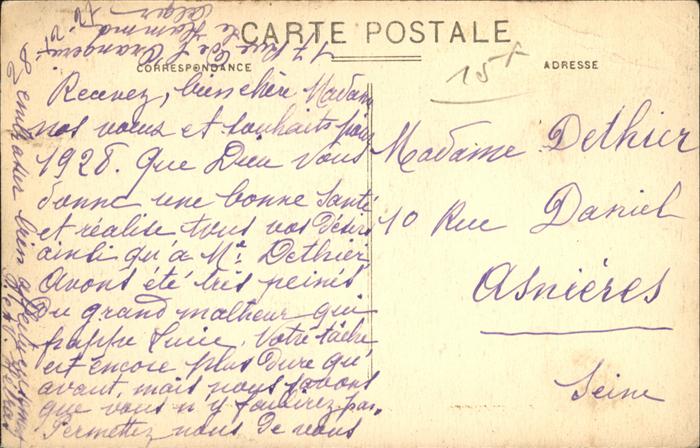 CARTE POSTALE
CORRESPONDANCE
ADRESSE
15 F
Recevez, bien chère Madame
nos vœux et souhaits pour
1928. Que Dieu vous
donne une bonne santé
et réalise tous vos désirs
ainsi qu'à Mr. Dethier
Avons été très peinés
du grand malheur qui
frappe Lucie. Votre tâche
est encore plus dure qu'
avant, mais nous savons
que vous n'y faillirez pas.
Permettez nous de vous
embrasser bien
17 Rue de l'Orangerie
le Hamma
Alger
Madame Dethier
10 Rue Daniel
Asnières
Seine